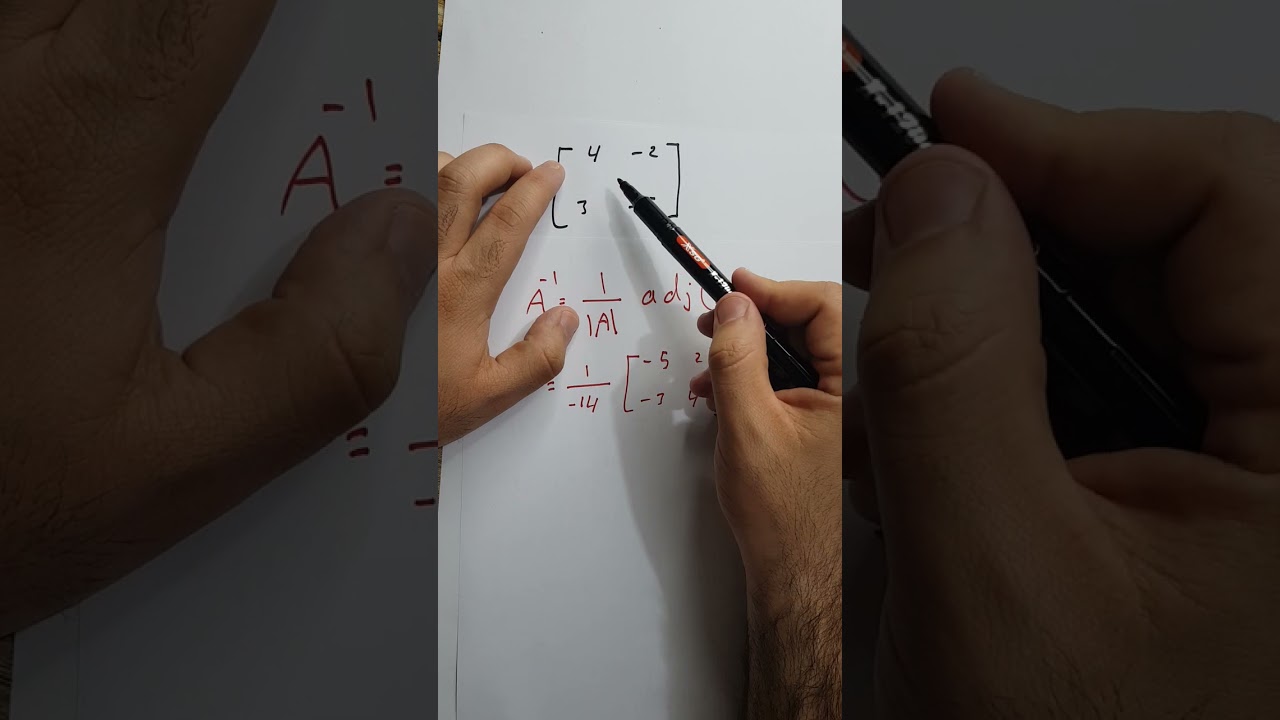 4 -2
3
A⁻¹ = 1/|A| adj(
= 1/-14 [ -5 2
-3 4